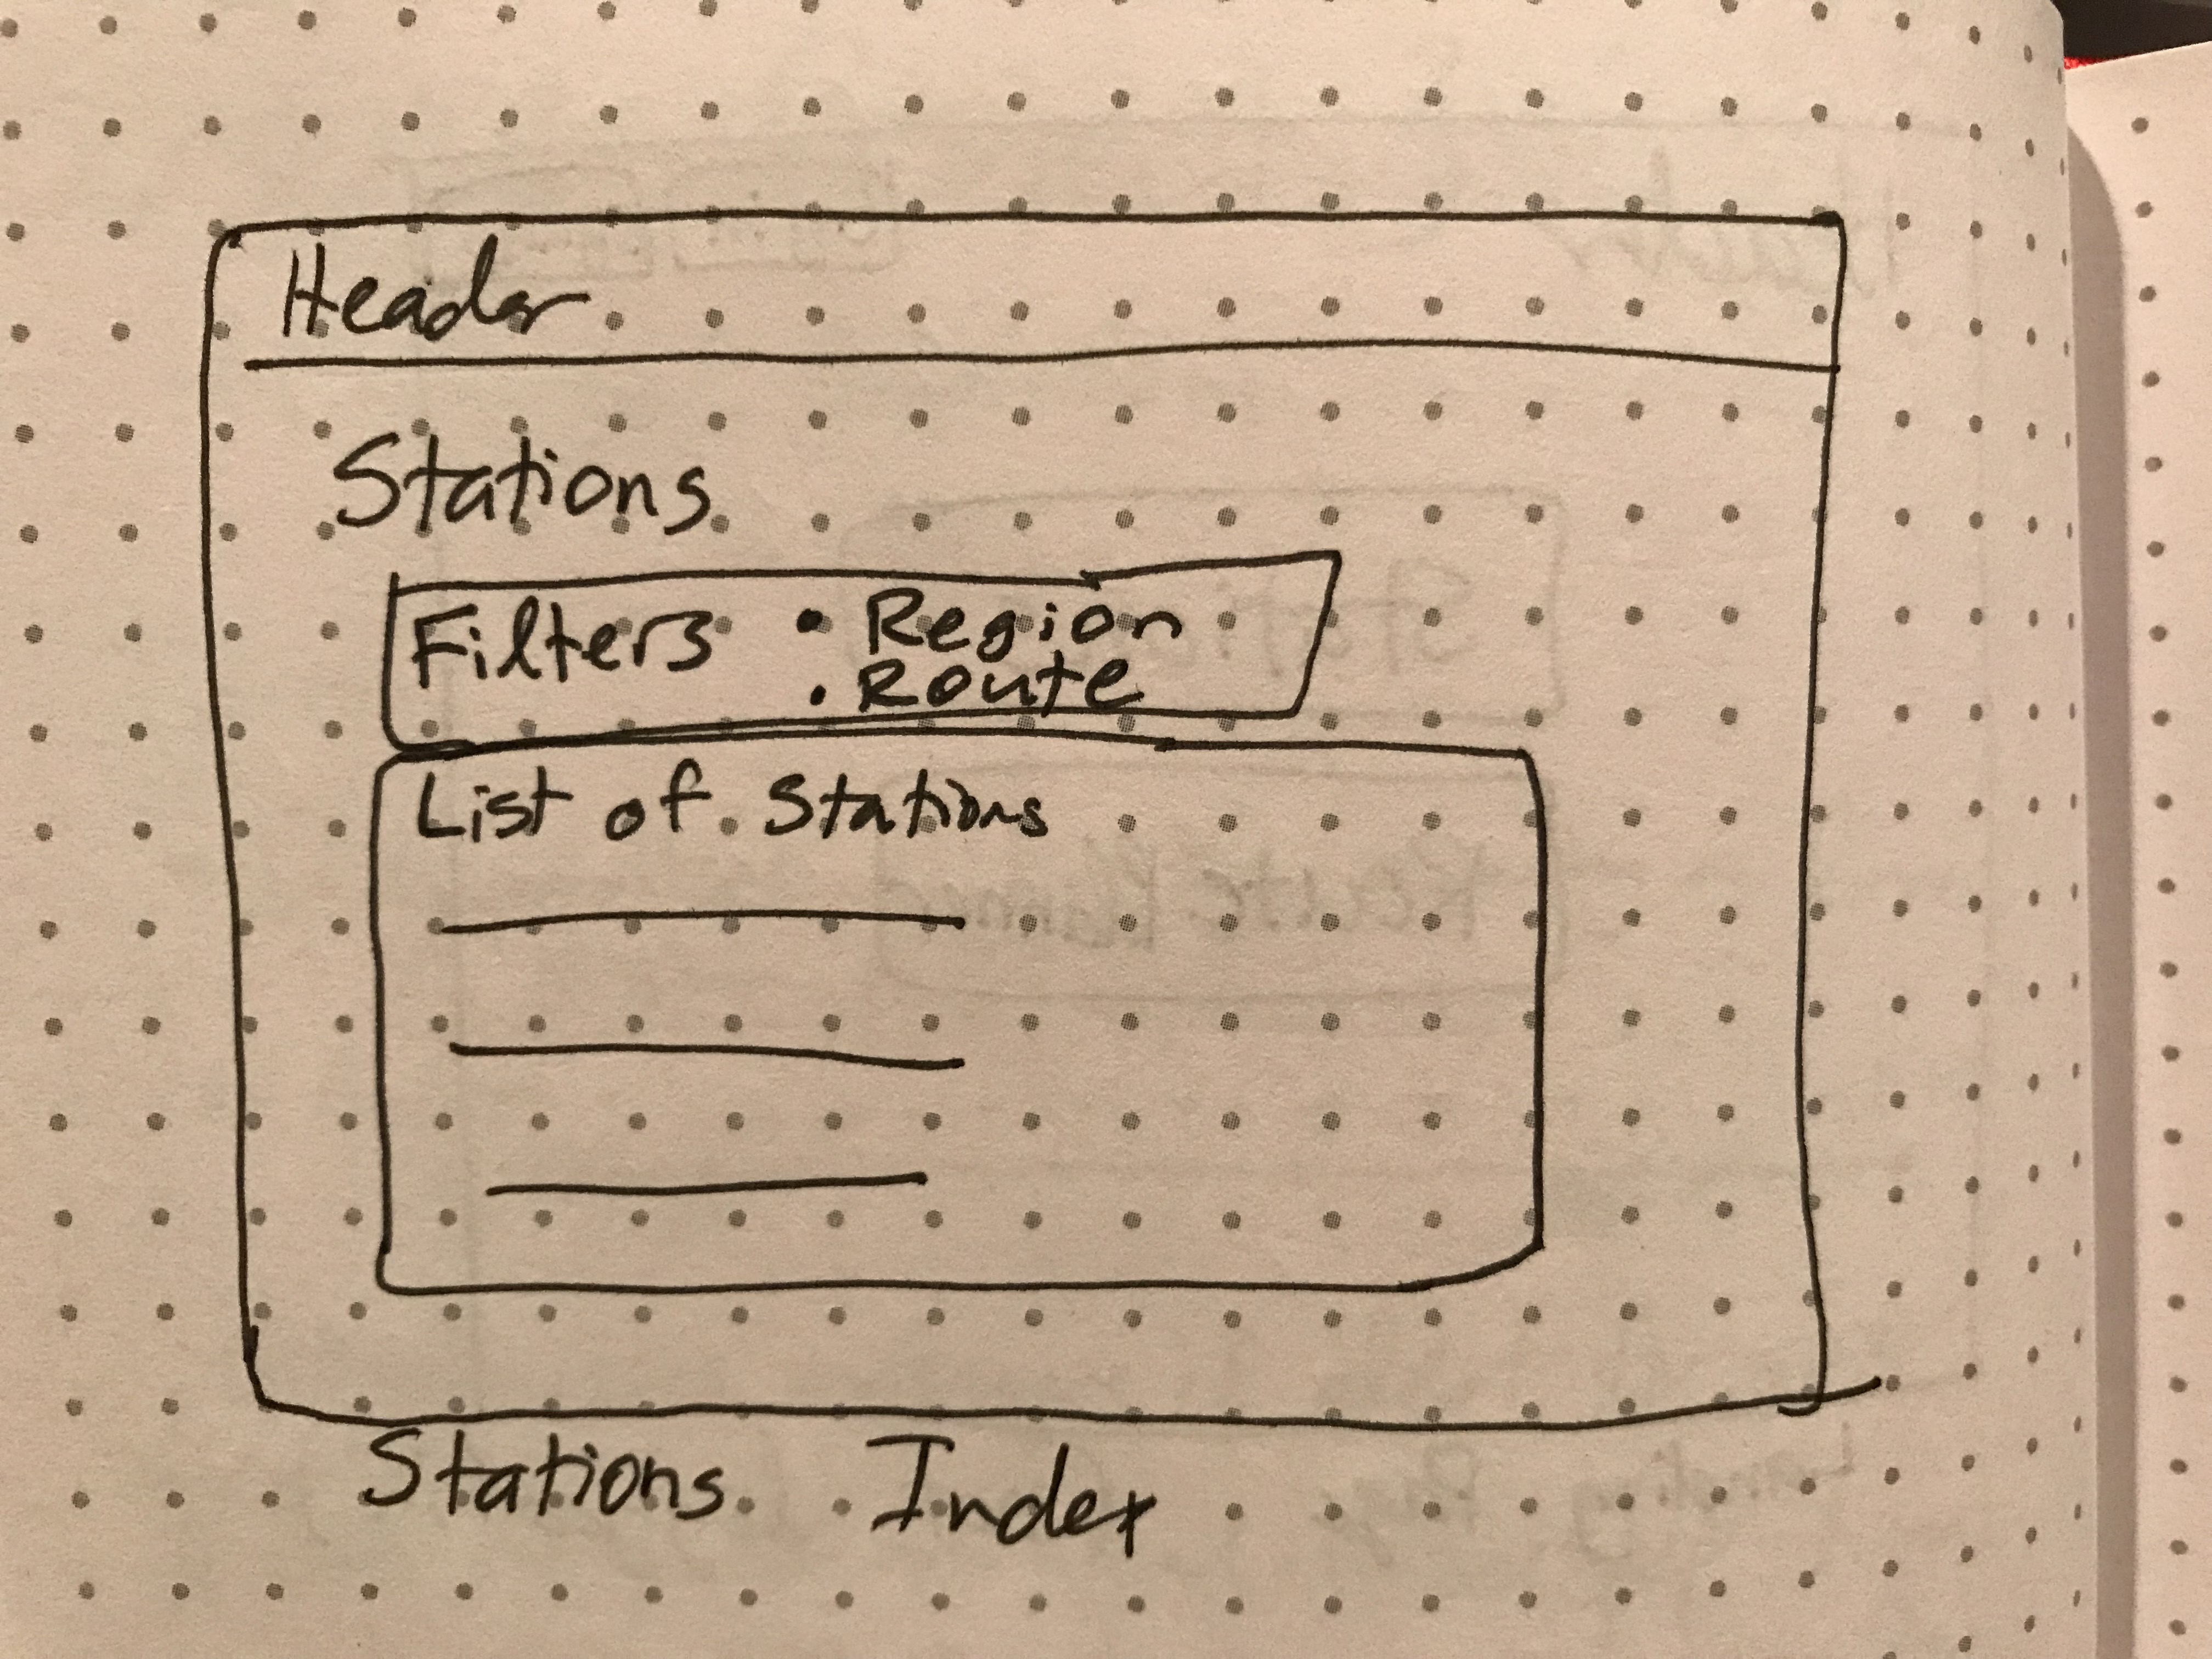 Header
Stations
Filters • Region
• Route
List of Stations
Stations Index